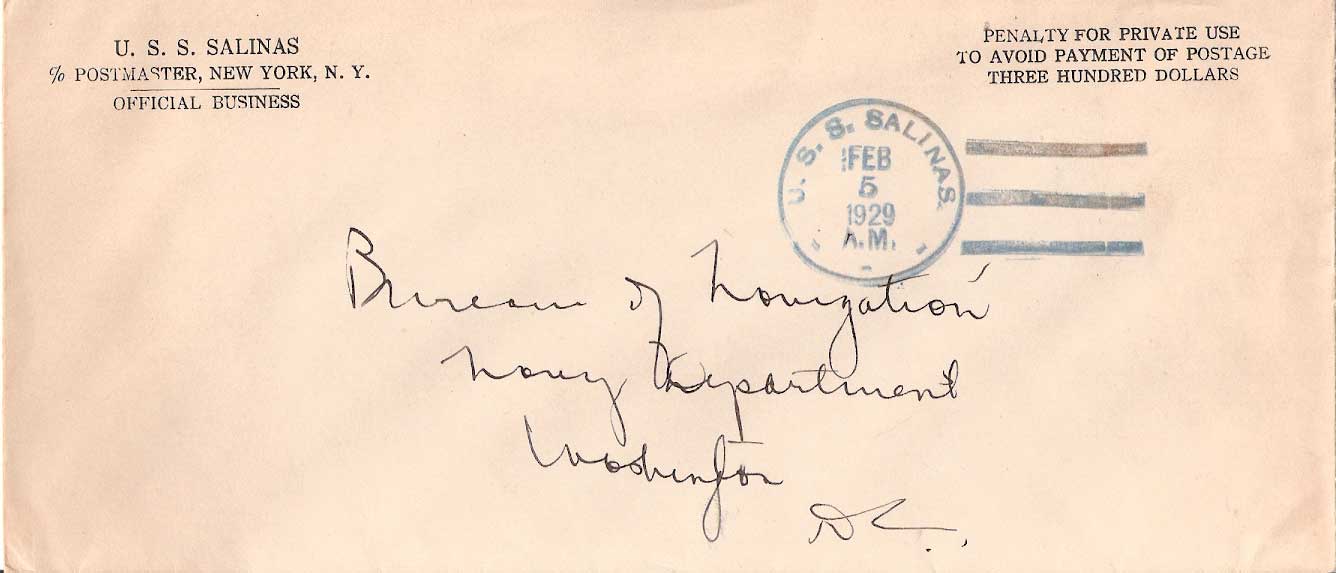 U. S. S. SALINAS
% POSTMASTER, NEW YORK, N. Y.
OFFICIAL BUSINESS
PENALTY FOR PRIVATE USE
TO AVOID PAYMENT OF POSTAGE
THREE HUNDRED DOLLARS
U. S. S. SALINAS.
FEB
5
1929
A.M.
Bureau of Navigation
Navy Department
Washington
D.C.